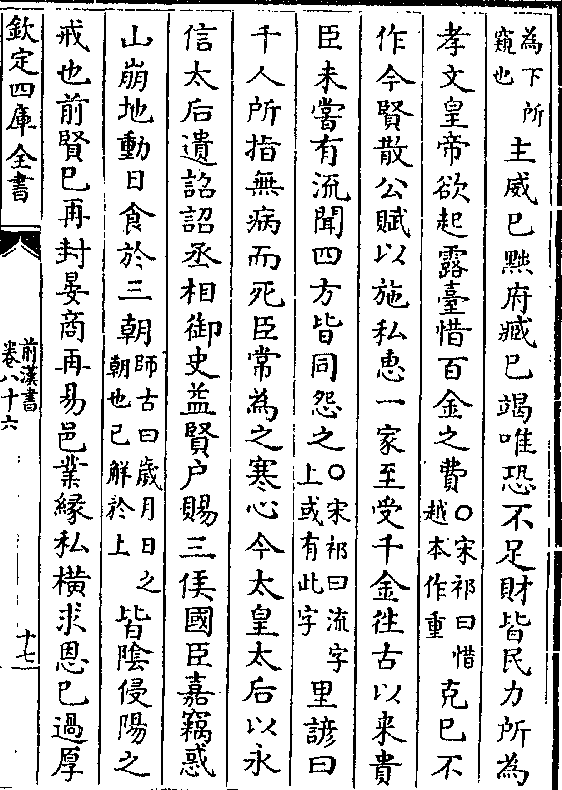 為下所窺也主威已黜府臧已竭唯恐不足財皆民力所為
孝文皇帝欲起露臺惜百金之費○宋祁曰惜越本作重克已不
作今賢散公賦以施私惠一家至受千金徃古以来貴
臣未嘗有流聞四方皆同怨之○宋祁曰流字上或有此字里諺曰
千人所指無病而死臣常為之寒心今太皇太后以永
信太后遺詔詔丞相御史益賢户賜三侯國臣嘉竊惑
山崩地動日食於三朝師古曰歳月日之朝也已解於上皆陰侵陽之
戒也前賢已再封晏商再易邑業縁私橫求恩已過厚
欽定四庫全書
前漢書
卷八十六
十七